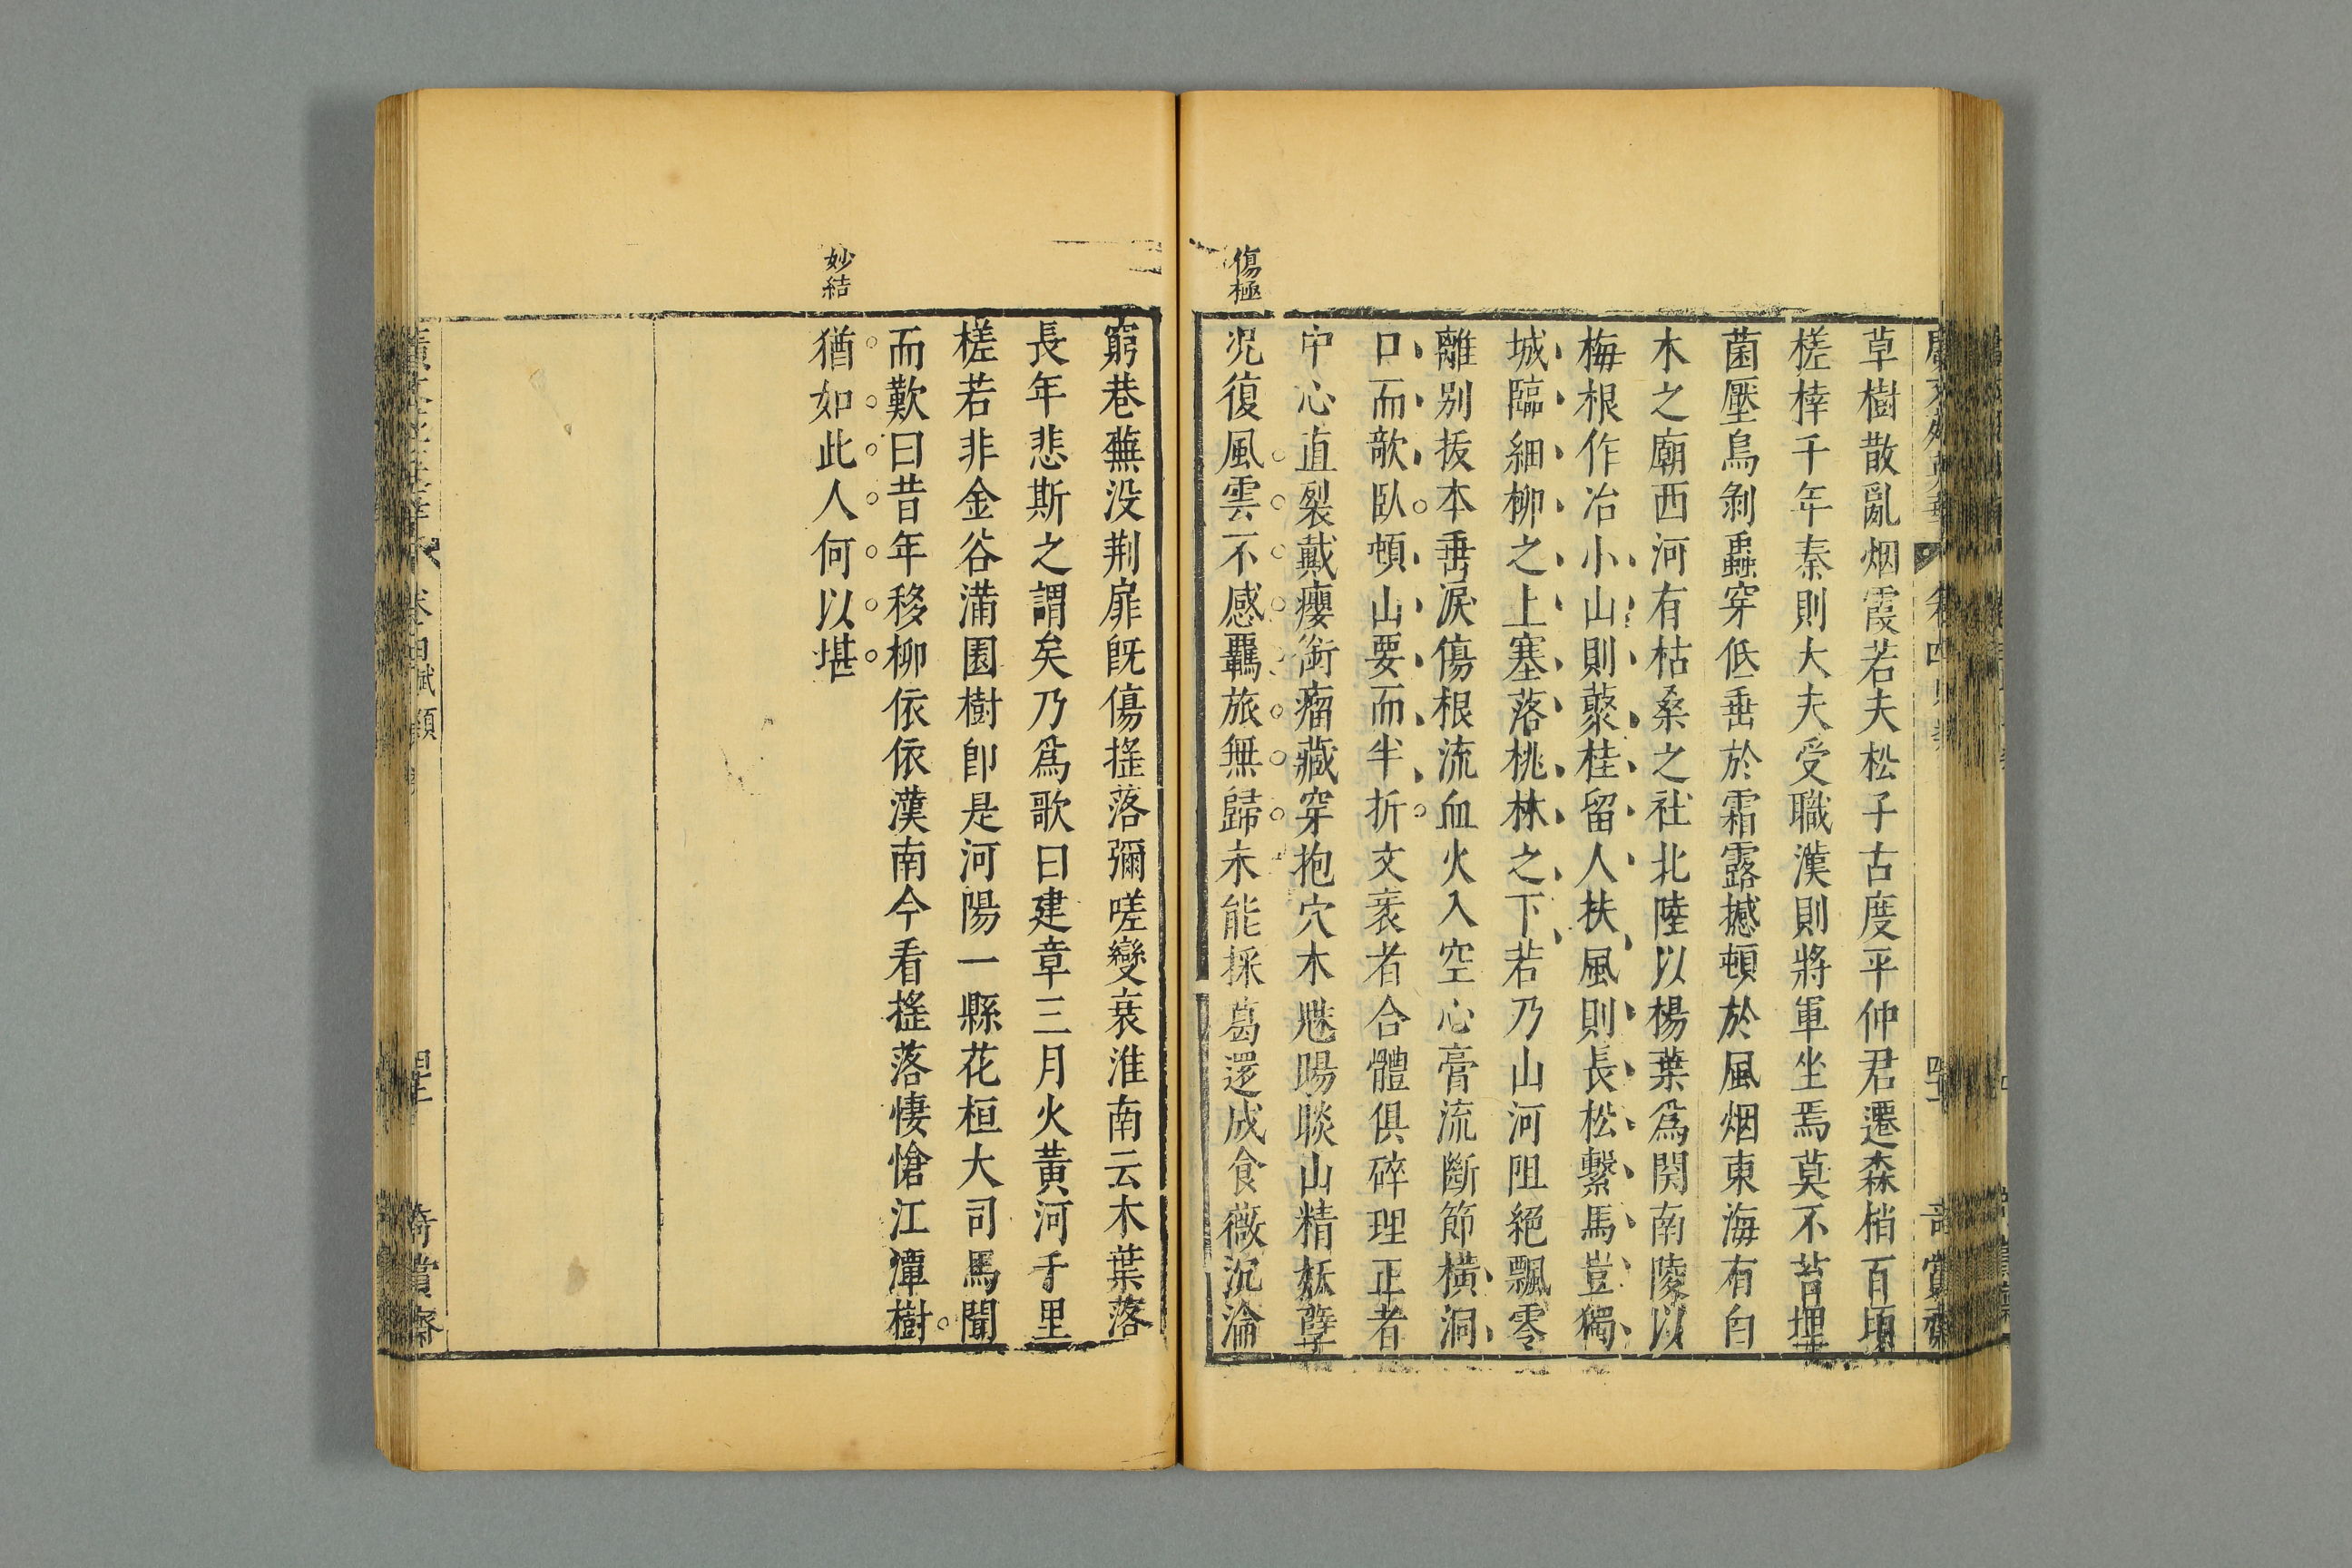 草樹散亂烟霞若夫松子古度平仲君遷森梢百頃
槎㭮千年秦則大夫受職漢則將軍坐焉莫不苔埋
菌壓鳥剝蟲穿低垂於霜露撼頓於風烟東海有白
木之廟西河有枯桑之社北陸以楊葉爲関南陵以
梅根作冶小山則藂桂留人扶風則長松繫馬豈獨
城臨細柳之上塞落桃林之下若乃山河阻絕飄零
離别拔本垂淚傷根流血火入空心膏流斷節橫洞
口而欹臥頓山要而半折文衺者合體俱碎理正者
中心直裂戴癭銜瘤藏穿抱穴木魅賜睒山精妖孽
傷極
况復風雲不感羈旅無歸未能採葛還成食薇沉淪
窮巷蕪没荆扉既傷搖落彌嗟變衰淮南云木葉落
長年悲斯之謂矣乃爲歌曰建章三月火黃河千里
槎若非金谷滿園樹卽是河陽一縣花桓大司馬聞
而歎曰昔年移柳依依漢南今看搖落悽愴江潭樹
妙結
猶如此人何以堪
賦類
賞齋